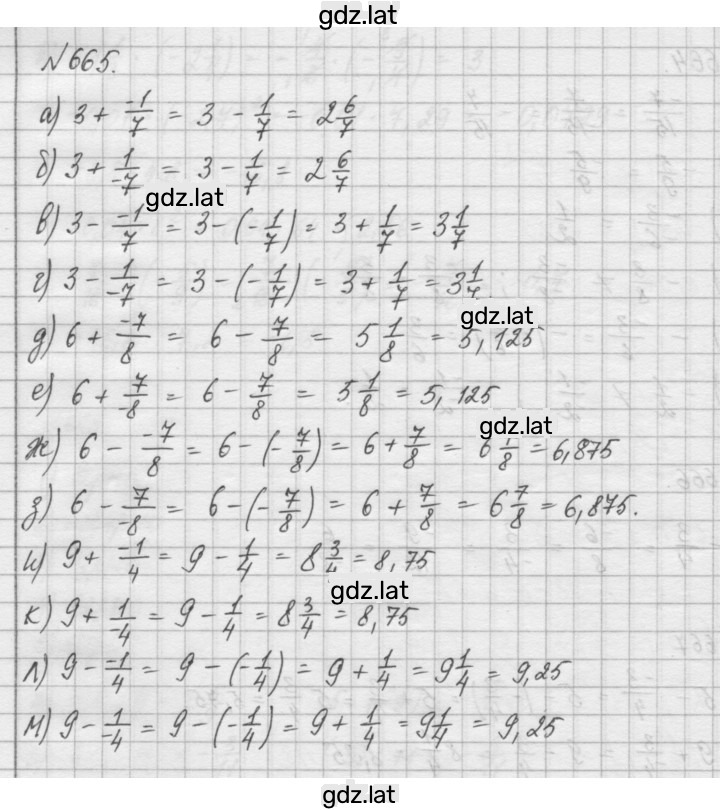 gdz.lat
№665.
а) 3 + -1/7 = 3 - 1/7 = 2 6/7
б) 3 + 1/-7 = 3 - 1/7 = 2 6/7
gdz.lat
в) 3 - -1/7 = 3 - (-1/7) = 3 + 1/7 = 3 1/7
г) 3 - 1/-7 = 3 - (-1/7) = 3 + 1/7 = 3 1/7
gdz.lat
д) 6 + -7/8 = 6 - 7/8 = 5 1/8 = 5,125
е) 6 + 7/-8 = 6 - 7/8 = 5 1/8 = 5,125
gdz.lat
ж) 6 - -7/8 = 6 - (-7/8) = 6 + 7/8 = 6 7/8 = 6,875
з) 6 - 7/-8 = 6 - (-7/8) = 6 + 7/8 = 6 7/8 = 6,875.
и) 9 + -1/4 = 9 - 1/4 = 8 3/4 = 8,75
gdz.lat
к) 9 + 1/-4 = 9 - 1/4 = 8 3/4 = 8,75
л) 9 - -1/4 = 9 - (-1/4) = 9 + 1/4 = 9 1/4 = 9,25
м) 9 - 1/-4 = 9 - (-1/4) = 9 + 1/4 = 9 1/4 = 9,25
gdz.lat